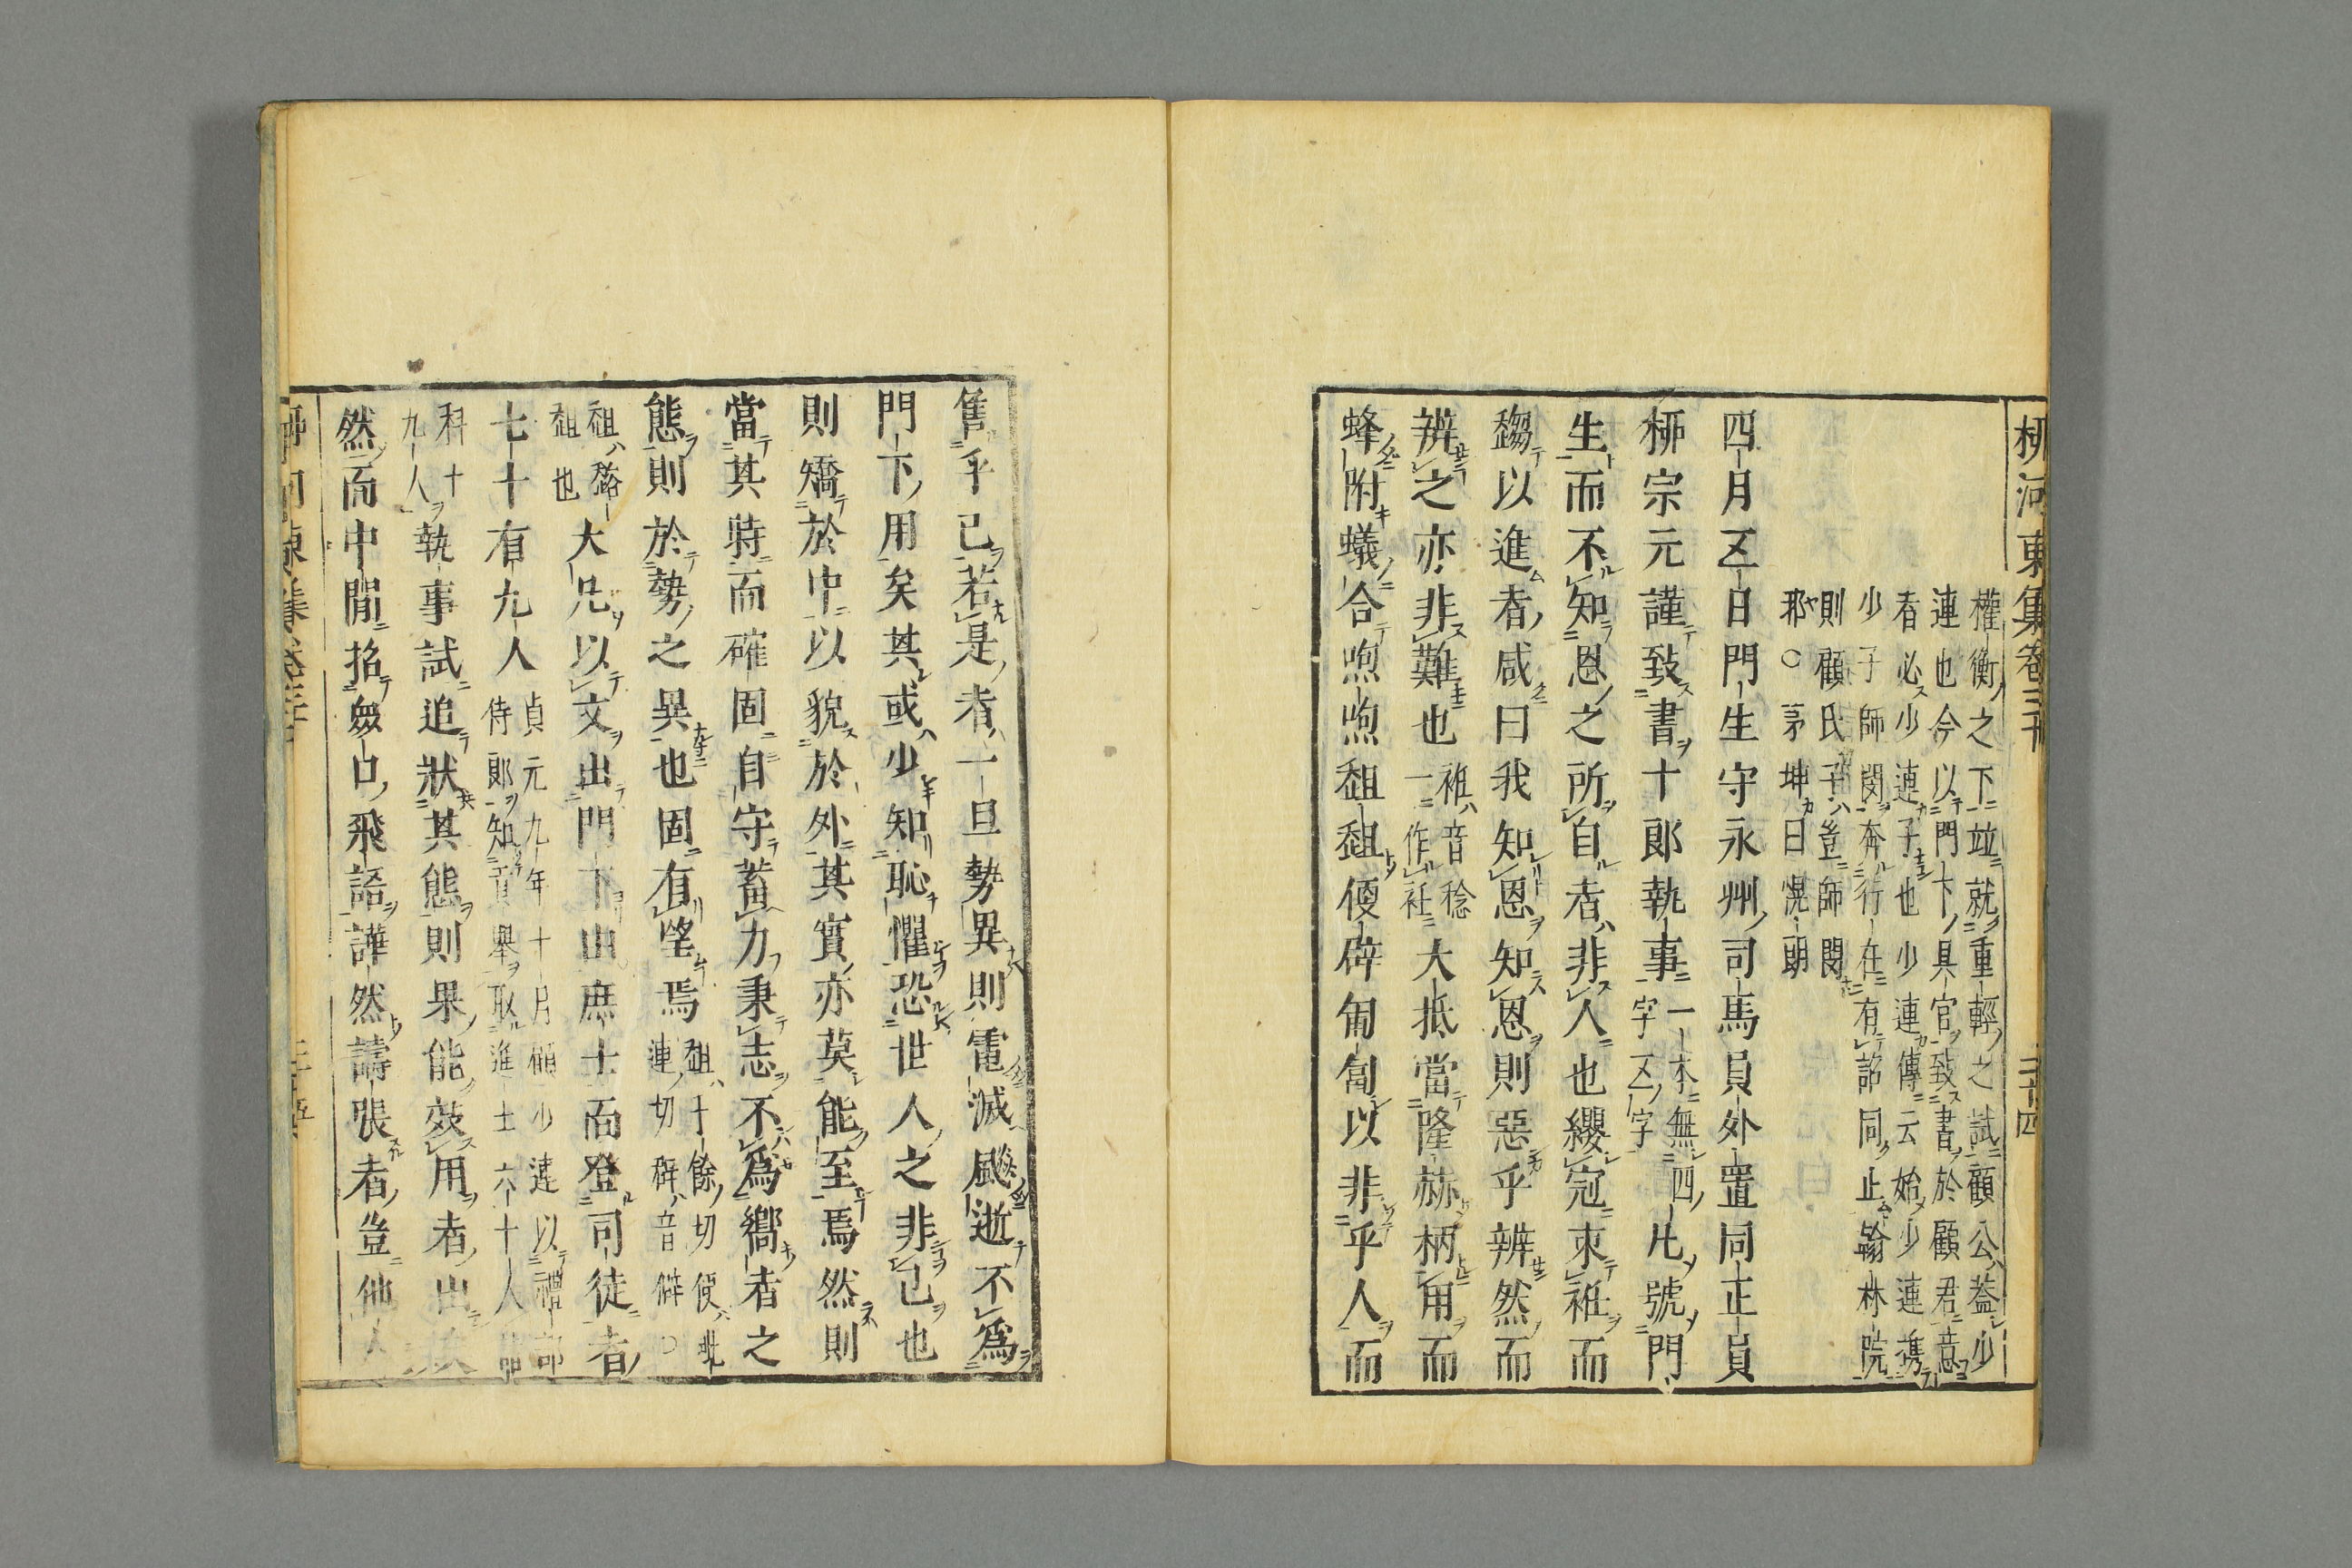 柳河東集卷三十
二十四
權衡之下竝就重輕之試顧公蓋少
連也今以門下具官致書於顧君意
者必少連子也少連傳云始少連攜
少子師閔奔行在有詔同止翰林院
則顧氏子豈師閔
耶○茅坤曰愰朗
四月五日門生守永州司馬員外置同正員
柳宗元謹致書十郎執事一本無四字五字凡號門
生而不知恩之所自者非人也纓冠束袵而
趨以進者咸曰我知恩知恩則惡乎辨然而
辨之亦非難也袵音稔一作衽大抵當隆赫柄用而
蜂附蟻合煦煦趄趄便僻匍匐以非乎人而
售乎己若是者一旦勢異則電滅飈逝不爲
門下用矣其或少知恥懼恐世人之非己也
則矯於中以貌於外其實亦莫能至焉然則
當其時而確固自守蓄力秉志不爲嚮者之
態則於勢之異也固有望焉趄十餘切便毗連切僻音僻○
趄趑趄也大凡以文出門下由庶士而登司徒者
七十有九人貞元九年十月顧少連以禮部侍郎知貢舉取進士六十人
科十九人執事試追狀其態則果能效用者出
然而中間招衆口飛語譁然譸張者豈他人